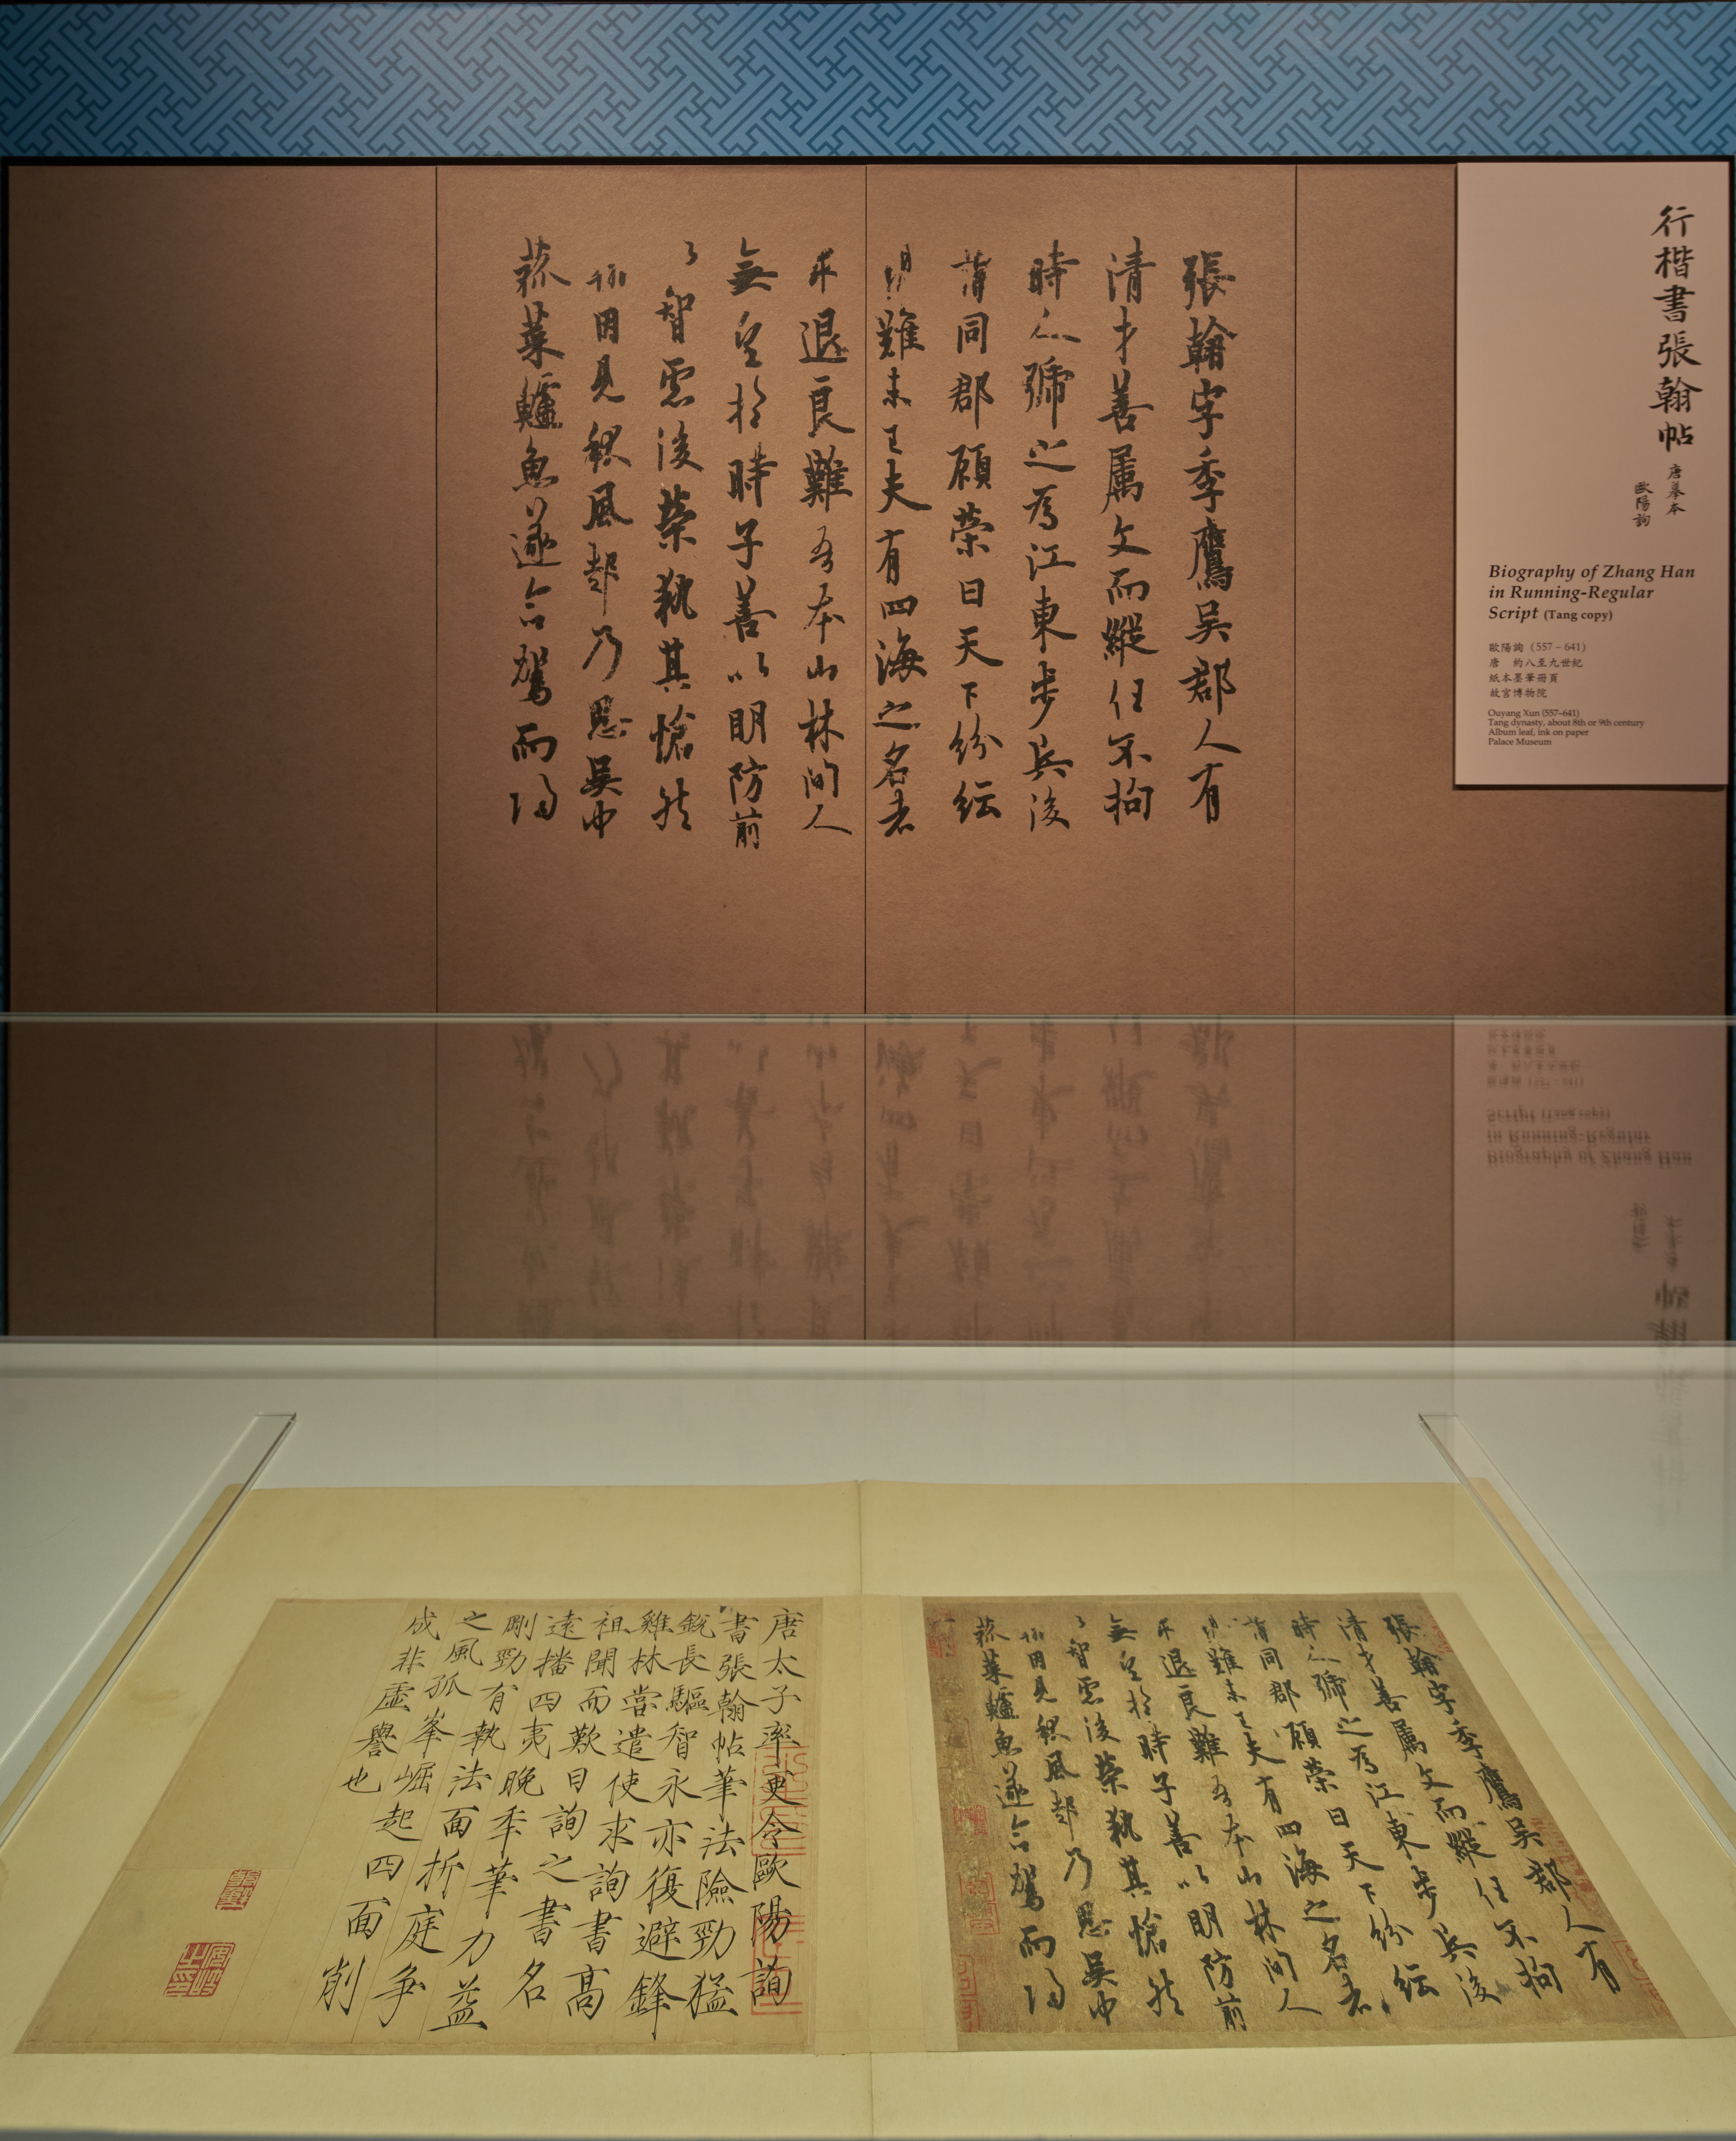 行楷書張翰帖
唐摹本
歐陽詢
Biography of Zhang Han
in Running-Regular
Script (Tang copy)
歐陽詢（557 – 641）
唐　約八至九世紀
紙本墨筆冊頁
故宮博物院
Ouyang Xun (557–641)
Tang dynasty, about 8th or 9th century
Album leaf, ink on paper
Palace Museum
張翰字季鷹吳郡人有
清才善属文而縱任不拘
時人號之為江東步兵後
同郡顧榮曰天下紛紜
難未已夫有四海之名者
求退良難吾本山林間人
無望於時子善以明防前
以智慮後榮執其愴然
翰因見秋風起乃思吳中
菰菜鱸魚遂命駕而歸
張翰字季鷹吳郡人有
清才善属文而縱任不拘
時人號之為江東步兵後
同郡顧榮曰天下紛紜
難未已夫有四海之名者
求退良難吾本山林間人
無望於時子善以明防前
以智慮後榮執其愴然
翰因見秋風起乃思吳中
菰菜鱸魚遂命駕而歸
唐太子率更令歐陽詢
書張翰帖筆法險勁猛
銳長驅智永亦復避鋒
雞林嘗遣使求詢書高
祖聞而歎曰詢之書名
遠播四夷晚年筆力益
剛勁有執法面折庭爭
之風孤峯崛起四面削
成非虛譽也